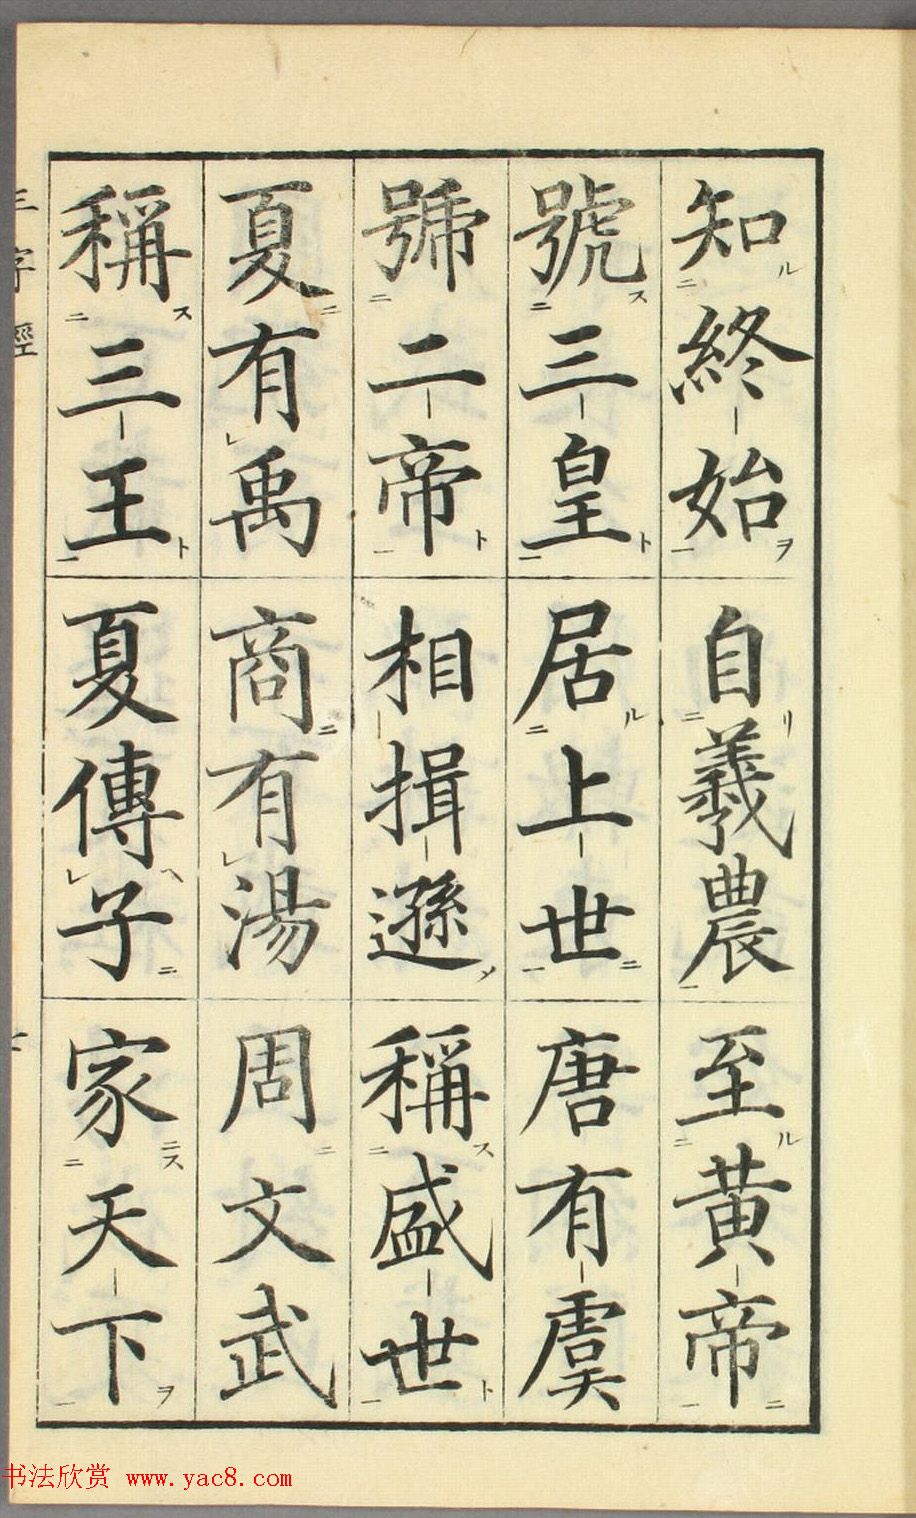 知終始 自羲農 至黄帝
號三皇 居上世 唐有虞
號二帝 相揖遜 稱盛世
夏有禹 商有湯 周文武
稱三王 夏傳子 家天下
三字經
书法欣赏 www.yac8.com